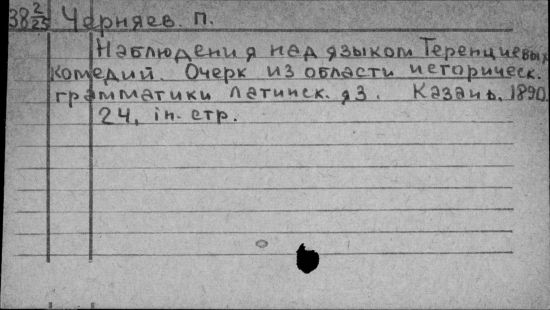 38 2/25 Черняев. П.
Наблюдения над языком Теренциевых
комедий. Очерк из области историческ.
грамматики латинск. яз. Казань. 1890
24, in. стр.